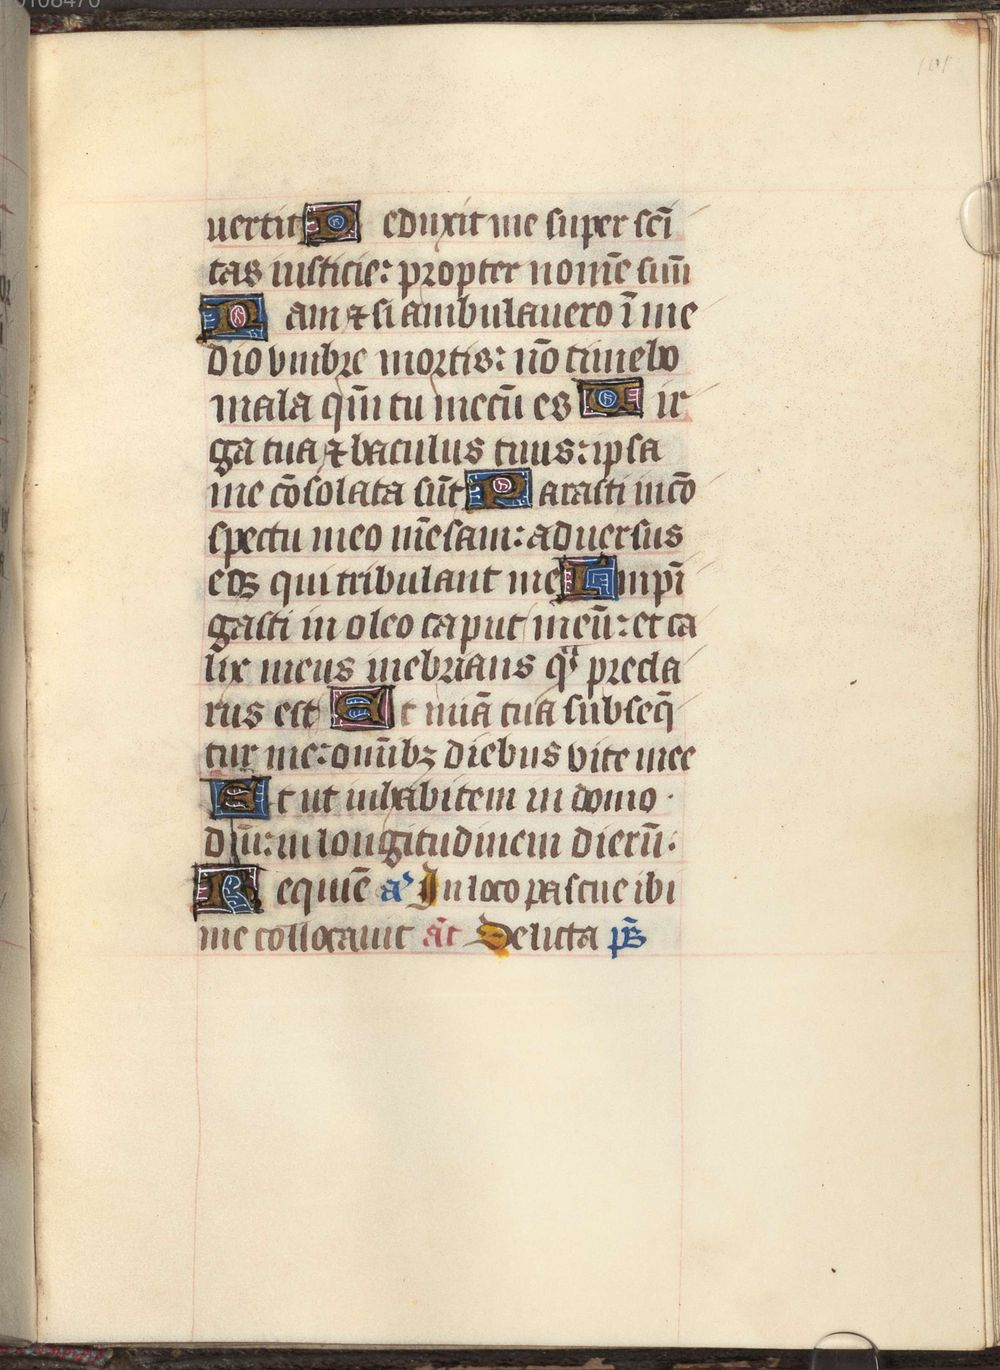 101
uertit D eduxit me super scī
tas iusticie: propter nomē suū
N am ⁊ si ambulauero ī me
dio vmbre mortis: nō timebo
mala qm̄ tu mecū es V ir
ga tua ⁊ baculus tuus: ipsa
me cōsolata sūt P arasti incō
spectu meo mēsam: aduersus
eos qui tribulant me I mpī
gasti in oleo caput meū: et ca
lix meus inebrians qͣ precla
rus est E t miā tua subseq̄
tur me: omībꝫ diebus vite mee
E t ut inhabitem in domo
dn̄i: in longitudinem dierū.
R equiē aͣ In loco pascue ibi
me collocauit āt Delicta ps̄